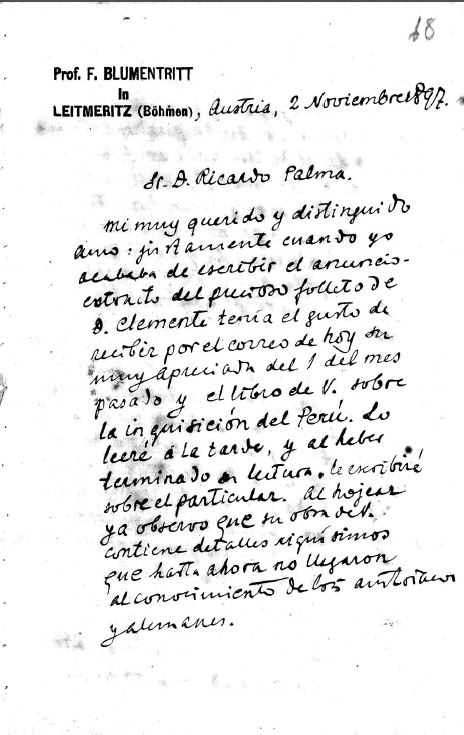 68
Prof. F. BLUMENTRITT
in
LEITMERITZ (Böhmen), Austria, 2 Noviembre 1897.
Sr. D. Ricardo Palma.
Mi muy querido y distinguido
amo: justamente cuando yo
acababa de escribir el anuncio-
extracto del precioso folleto de
D. Clemente tenía el gusto de
recibir por el correo de hoy su
muy apreciada del 1 del mes
pasado y el libro de V. sobre
la inquisición del Perú. Lo
leeré á la tarde, y al haber
terminado su lectura, le escribiré
sobre el particular. Al hojear
ya observo que su obra de V.
contiene detalles riquísimos
que hasta ahora no llegaron
al conocimiento de los austriacos
y alemanes.